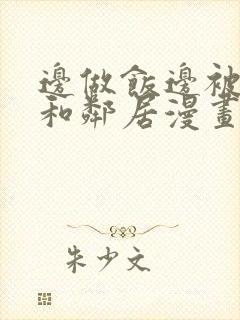 邊做飯邊被
和鄰居漫畫
朱少文